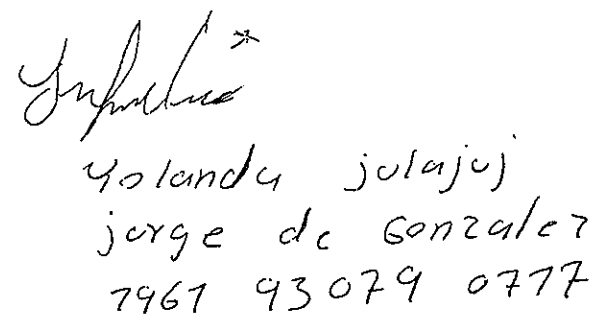 Yolanda julajuj
jorge de Gonzalez
1961 93079 0717